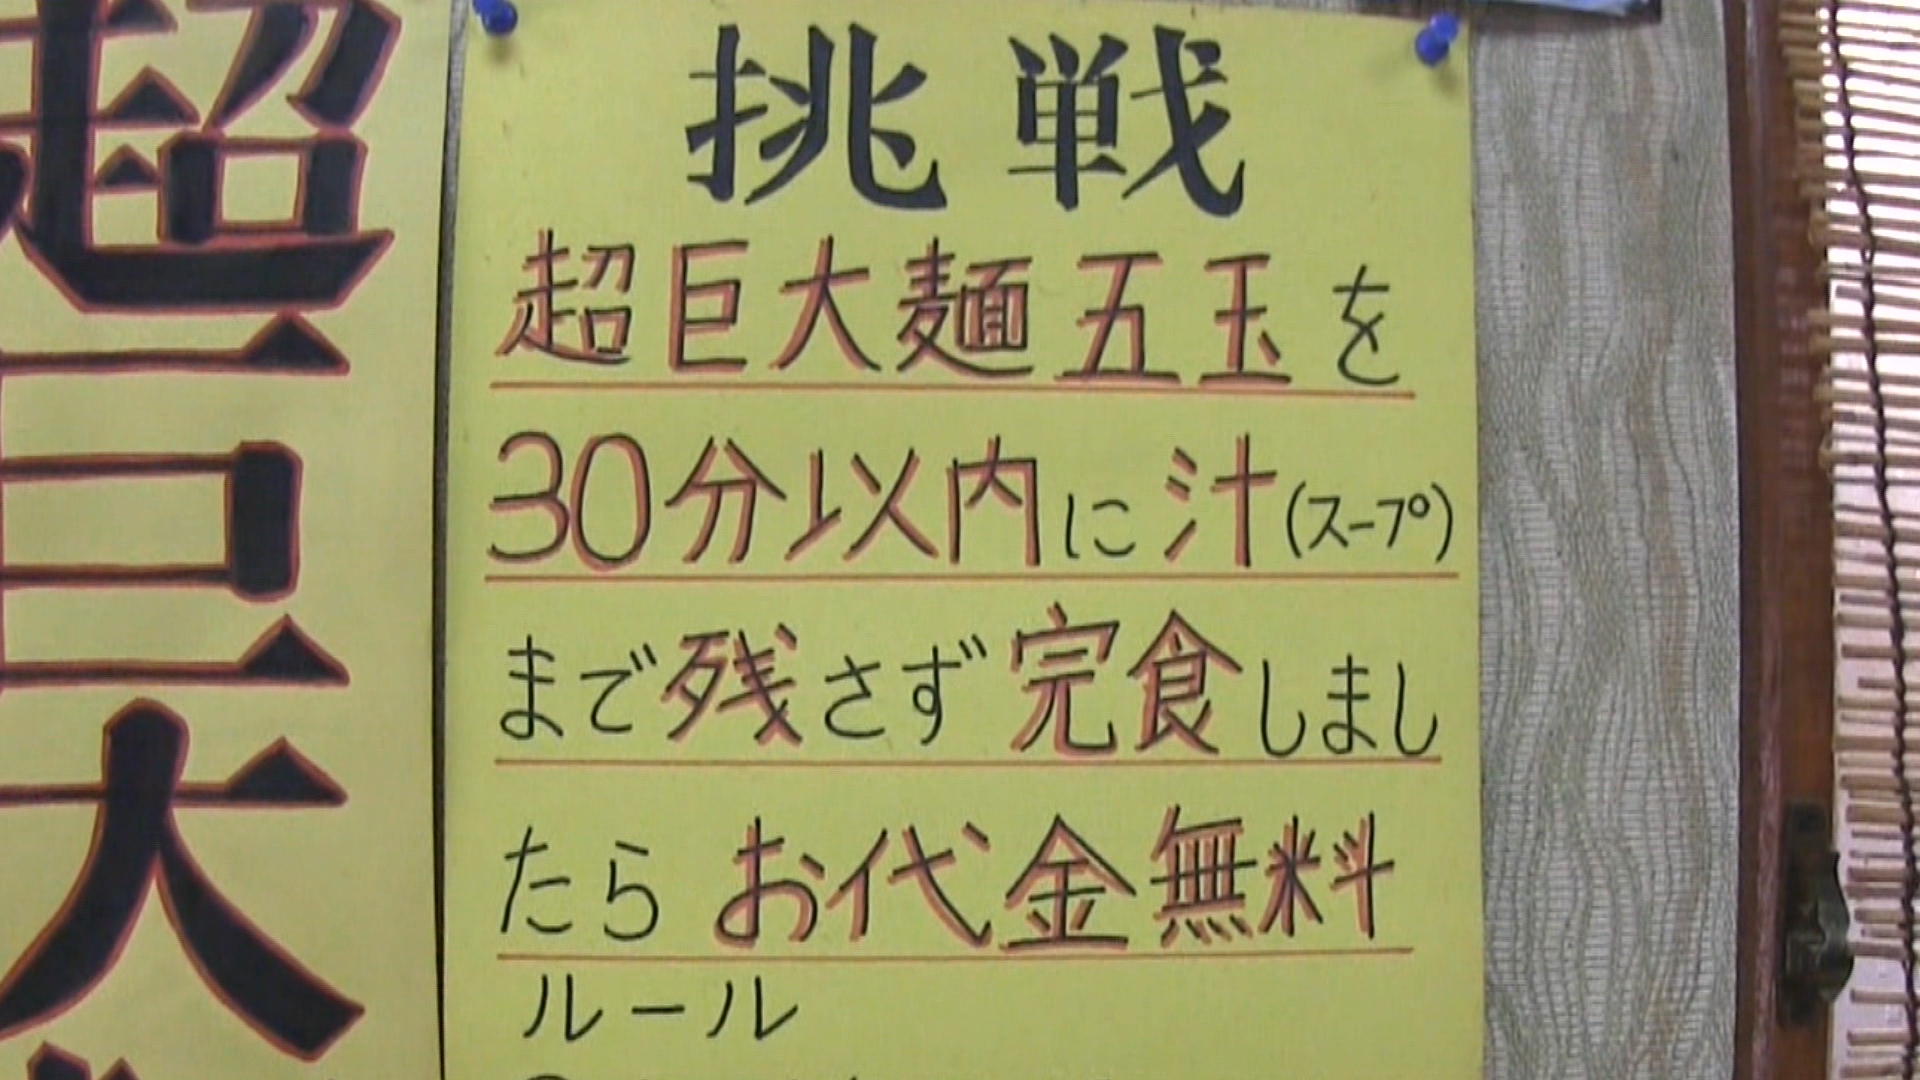 超巨大
挑戦
超巨大麺五玉を
30分以内に汁(スープ)
まで残さず完食しまし
たらお代金無料
ルール